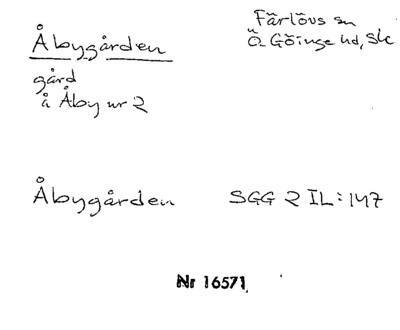 Åbygården
Färlövs sn
Ö Göinge hd, Sk
gård
å Åby nr 2
Åbygården SGG 2 IL:147
Nr 16571